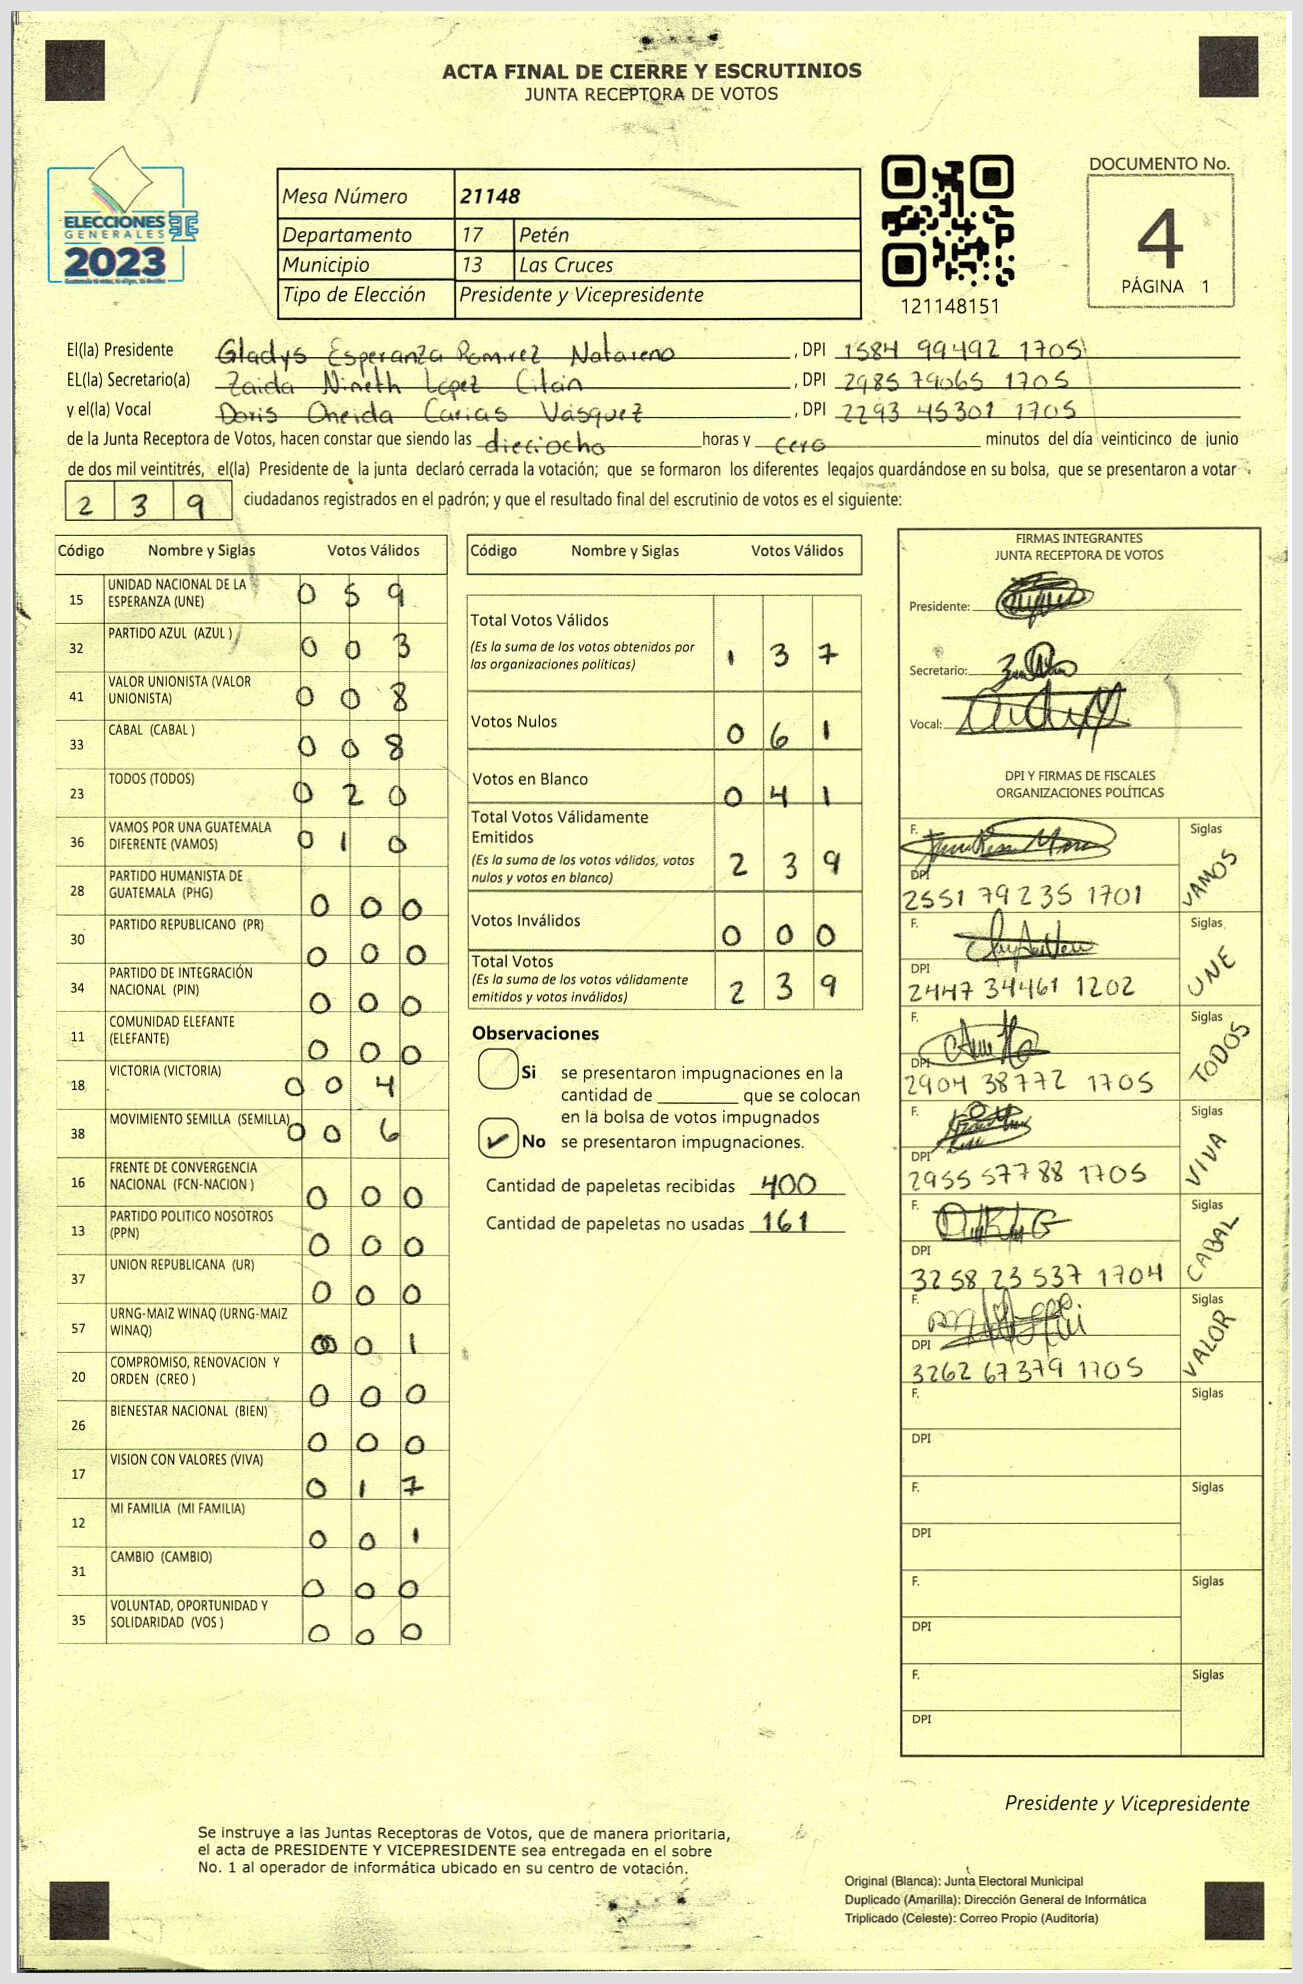 ACTA FINAL DE CIERRE Y ESCRUTINIOS
JUNTA RECEPTORA DE VOTOS
ELECCIONES
GENERALES
2023
Mesa Número 21148
Departamento 17 Petén
Municipio 13 Las Cruces
Tipo de Elección Presidente y Vicepresidente
121148151
DOCUMENTO No.
4
PÁGINA 1
El(la) Presidente Gladys Esperanza Ramirez Natareno , DPI 1584 99492 1705
EL(la) Secretario(a) Zaida Nineth López Citán , DPI 2985 79065 1705
y el(la) Vocal Doris Oneida Carias Vásquez , DPI 2293 45301 1705
de la Junta Receptora de Votos, hacen constar que siendo las dieciocho horas y cero minutos del día veinticinco de junio
de dos mil veintitrés, el(la) Presidente de la junta declaró cerrada la votación; que se formaron los diferentes legajos guardándose en su bolsa, que se presentaron a votar
2 3 9 ciudadanos registrados en el padrón; y que el resultado final del escrutinio de votos es el siguiente:
Código Nombre y Siglas Votos Válidos
15 UNIDAD NACIONAL DE LA ESPERANZA (UNE) 0 5 9
32 PARTIDO AZUL (AZUL ) 0 0 3
41 VALOR UNIONISTA (VALOR UNIONISTA) 0 0 8
33 CABAL (CABAL ) 0 0 8
23 TODOS (TODOS) 0 2 0
36 VAMOS POR UNA GUATEMALA DIFERENTE (VAMOS) 0 1 0
28 PARTIDO HUMANISTA DE GUATEMALA (PHG) 0 0 0
30 PARTIDO REPUBLICANO (PR) 0 0 0
34 PARTIDO DE INTEGRACIÓN NACIONAL (PIN) 0 0 0
11 COMUNIDAD ELEFANTE (ELEFANTE) 0 0 0
18 VICTORIA (VICTORIA) 0 0 4
38 MOVIMIENTO SEMILLA (SEMILLA) 0 0 6
16 FRENTE DE CONVERGENCIA NACIONAL (FCN-NACION ) 0 0 0
13 PARTIDO POLITICO NOSOTROS (PPN) 0 0 0
37 UNION REPUBLICANA (UR) 0 0 0
57 URNG-MAIZ WINAQ (URNG-MAIZ WINAQ) 0 0 1
20 COMPROMISO, RENOVACION Y ORDEN (CREO ) 0 0 0
26 BIENESTAR NACIONAL (BIEN) 0 0 0
17 VISION CON VALORES (VIVA) 0 1 7
12 MI FAMILIA (MI FAMILIA) 0 0 1
31 CAMBIO (CAMBIO) 0 0 0
35 VOLUNTAD, OPORTUNIDAD Y SOLIDARIDAD (VOS ) 0 0 0
Código Nombre y Siglas Votos Válidos
Total Votos Válidos
(Es la suma de los votos obtenidos por
las organizaciones políticas) 1 3 7
Votos Nulos 0 6 1
Votos en Blanco 0 4 1
Total Votos Válidamente
Emitidos
(Es la suma de los votos válidos, votos
nulos y votos en blanco) 2 3 9
Votos Inválidos 0 0 0
Total Votos
(Es la suma de los votos válidamente
emitidos y votos inválidos) 2 3 9
Observaciones
Si se presentaron impugnaciones en la
cantidad de ________ que se colocan
en la bolsa de votos impugnados
No se presentaron impugnaciones.
Cantidad de papeletas recibidas 400
Cantidad de papeletas no usadas 161
FIRMAS INTEGRANTES
JUNTA RECEPTORA DE VOTOS
Presidente:
Secretario:
Vocal:
DPI Y FIRMAS DE FISCALES
ORGANIZACIONES POLÍTICAS
F. Siglas
DPI VAMOS
2551 79235 1701
F. Siglas
DPI UNE
2447 34461 1202
F. Siglas
DPI TODOS
2904 38772 1705
F. Siglas
DPI VIVA
2955 57788 1705
F. Siglas
DPI CABAL
3258 23 537 1704
F. Siglas
DPI VALOR
3262 67379 1705
F. Siglas
DPI
F. Siglas
DPI
F. Siglas
DPI
F. Siglas
DPI
Presidente y Vicepresidente
Se instruye a las Juntas Receptoras de Votos, que de manera prioritaria,
el acta de PRESIDENTE Y VICEPRESIDENTE sea entregada en el sobre
No. 1 al operador de informática ubicado en su centro de votación.
Original (Blanca): Junta Electoral Municipal
Duplicado (Amarilla): Dirección General de Informática
Triplicado (Celeste): Correo Propio (Auditoría)